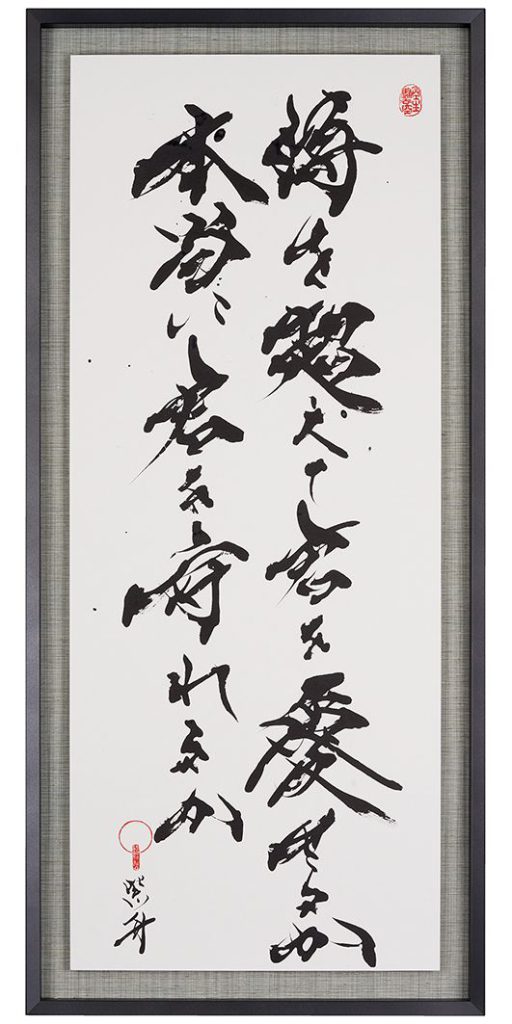 時を超えて君を愛せるか
本当に君を守れるか
紫舟